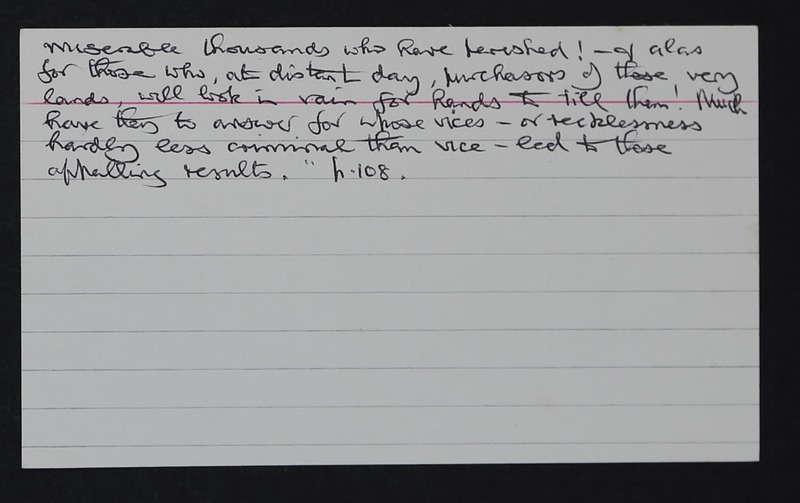 miserable thousands who have perished! – of alas
for those who, at distant day, purchasors of these very
lands, will look in vain for hands to till them! Much
have they to answer for whose vices – or recklessness
hardly less criminal than vice – led to these
appalling results." p.108.